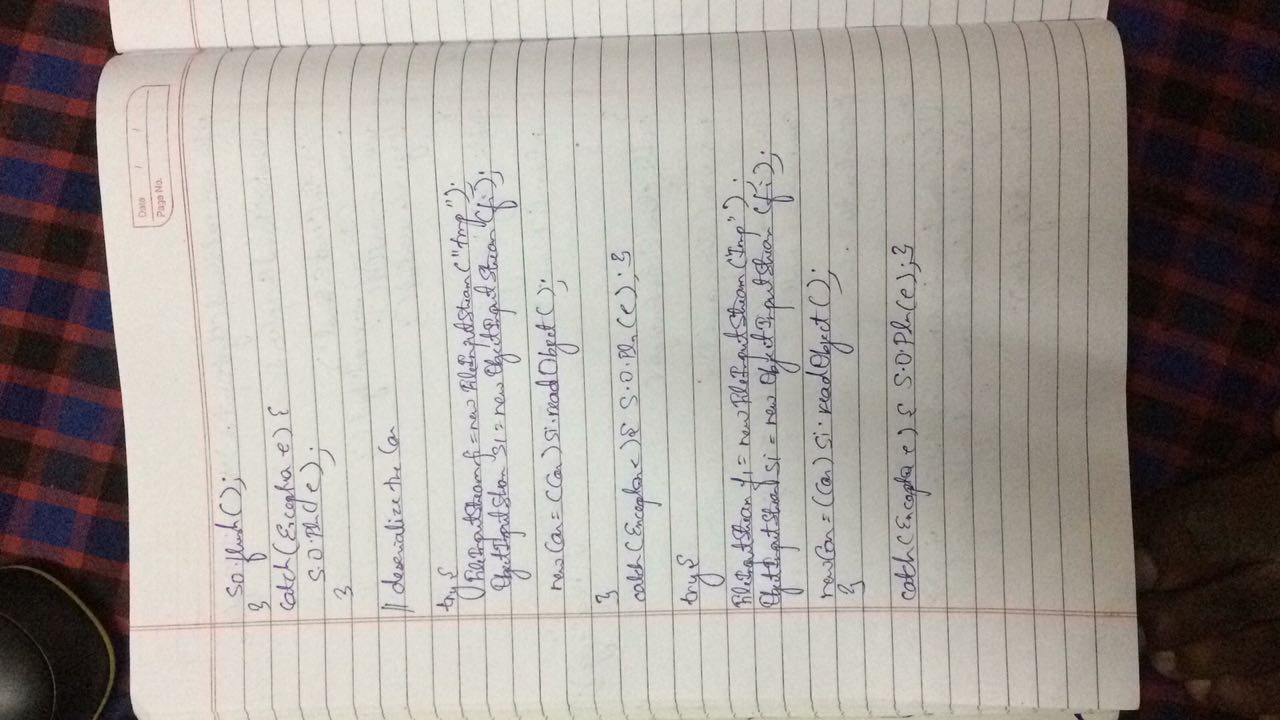 Date / /
Page No.
so.flush();
}
catch(Exception e) {
S.O.Pln(e);
}
// deserialize the Car
try{
FileInputStream fi = new FileInputStream("tmp");
ObjectInputStream si = new ObjectInputStream (fi);
newCar = (Car) si.readObject();
}
catch(Exception e){ S.O.Pln(e); }
try{
FileInputStream fi = new FileInputStream("tmp");
ObjectInputStream si = new ObjectInputStream (fi);
newCar = (Car) si.readObject();
}
catch(Exception e) { S.O.Pln(e); }